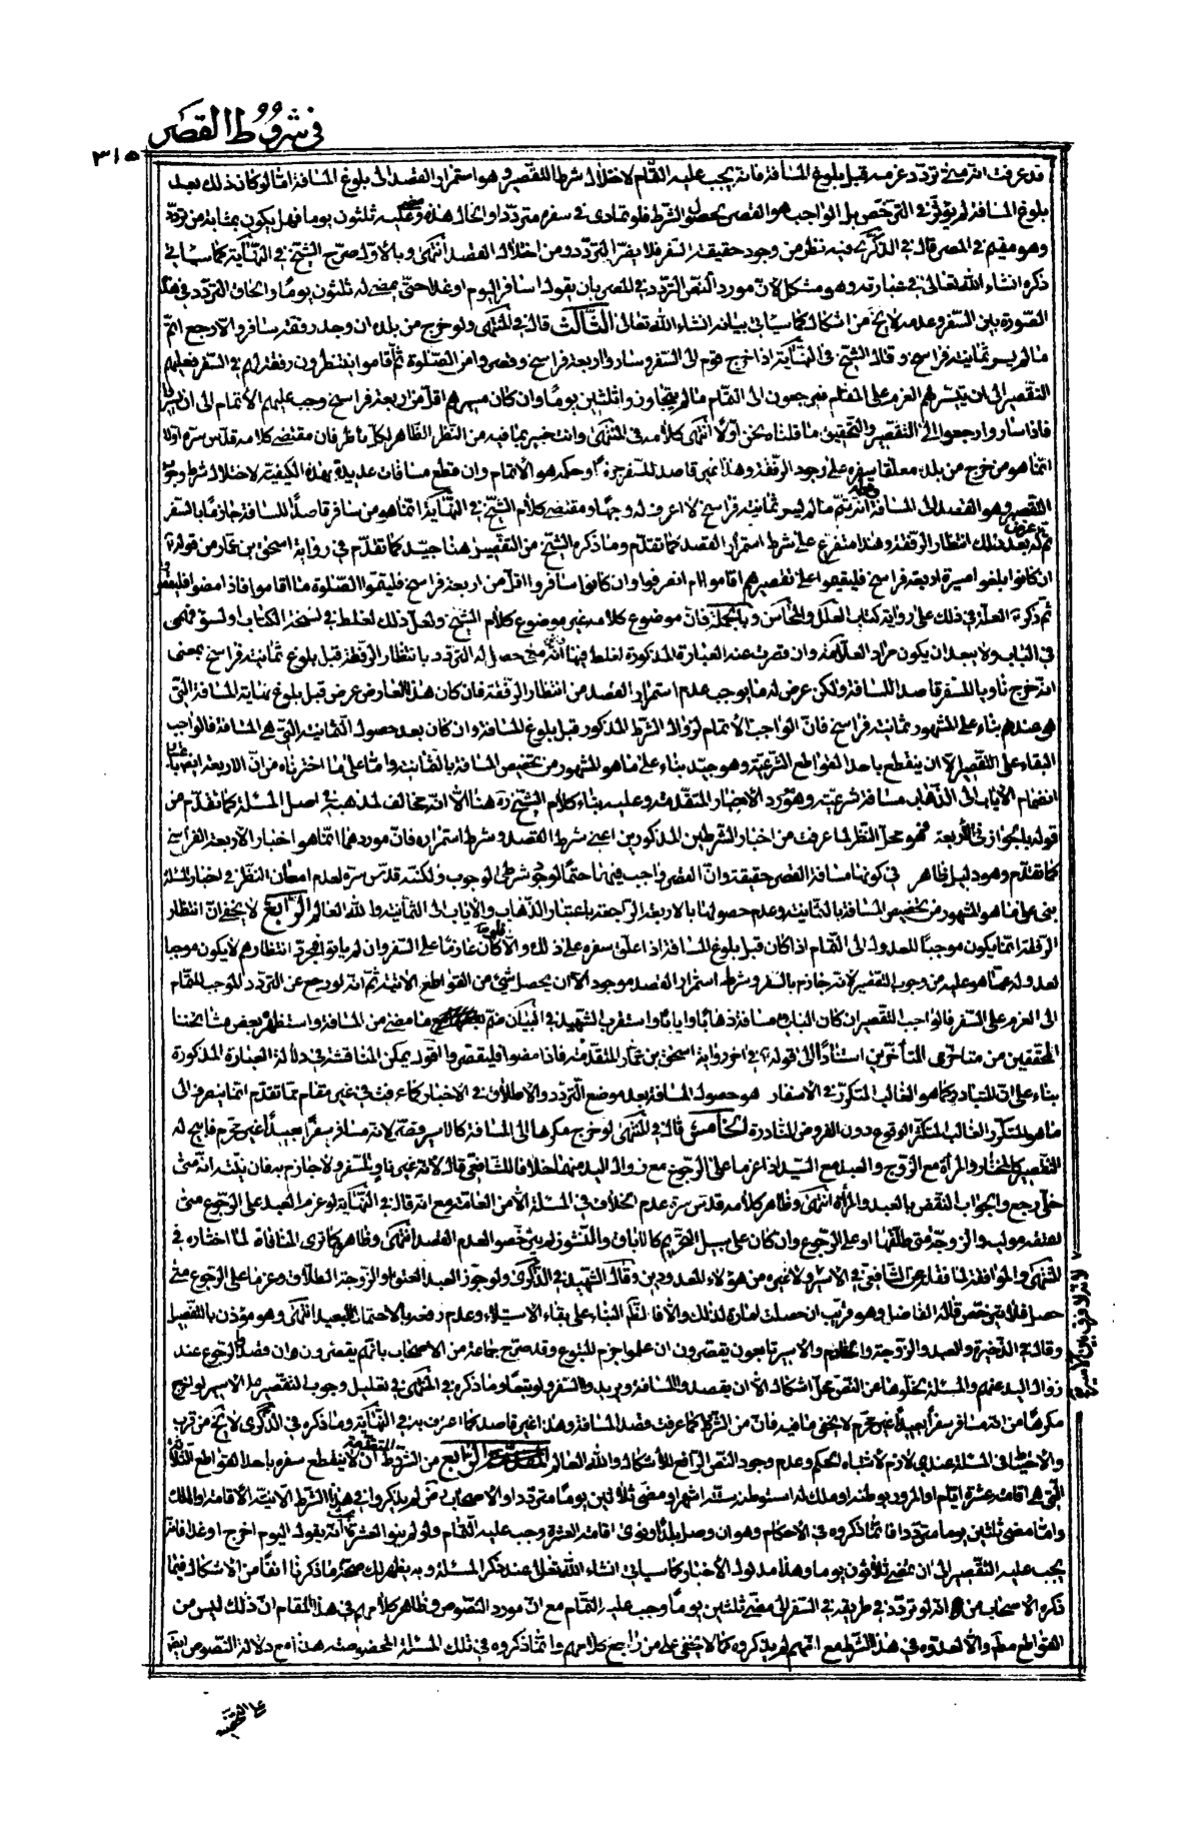 في شروط القصر
٣١٥
قد عرفت انه متى تردد عزمه قبل بلوغ المسافة فانه يجب عليه التمام لاختلال شرط التقصير وهو استمرار القصد الى بلوغ المسافة اما لو كان ذلك بعد
بلوغ المسافة لم يؤثر في الترخص بل الواجب هو القصر لحصول الشرط فلو تمادى في سفره مترددا والحال هذه ومضى عليه ثلثون يوما فهل يكون بمثابة من تردد
وهو مقيم في المصر قال في الذكرى فيه نظر من وجود حقيقة السفر فلا يضر التردد ومن اختلال القصد انتهى وبالاول صرح الشيخ في النهاية كما سيأتي
ذكره انشاء الله تعالى في عبارته وهو مشكل لان مورد النص التردد في المصر بان يقول اسافر اليوم او غدا حتى يمضى له ثلثون يوما والحاق التردد في هذه
الصورة بين السفر وعدمه لا يخ من اشكال كما سيأتي بيانه انشاء الله تعالى الثالث قال في المنتهى ولو خرج من بلده ان وجد رفقة سافر والا رجع اتم
ما لم يسر ثمانية فراسخ وقال الشيخ في النهاية اذا خرج قوم الى السفر وساروا اربعة فراسخ وقصروا من الصلوة ثم اقاموا ينتظرون رفقة لهم في السفر فعليهم
التقصير الى ان يتيسر لهم العزم على المقام فيرجعون الى التمام ما لم يتجاوزوا ثلثين يوما وان كان مسيرهم اقل من اربعة فراسخ وجب عليهم الاتمام الى ان يسيروا
فاذا ساروا رجعوا الى التقصير والتحقيق ما قلناه نحن اولا انتهى كلامه في المنتهى وانت خبير بما فيه من النظر الظاهر لكل ناظر فان مقتضى كلامه قدس سره اولا
انما هو من خرج من بلده معلقا سفره على وجود الرفقة وهذا غير قاصد للسفر جزما وحكمه هو الاتمام وان قطع مسافات عديدة بهذه الكيفية لاختلال شرط وجوب
التقصير وهو القصد الى المسافة وقوله انه يتم ما لم يسر ثمانية فراسخ لا اعرف له وجها ومقتضى كلام الشيخ في النهاية انما هو من سافر قاصدا للمسافة جازما بالسفر
ثم عرض له بعد ذلك انتظار الرفقة وهذا متفرع على شرط استمرار القصد كما تقدم وما ذكره الشيخ من التفصيل هنا جيد كما تقدم في رواية اسحق بن عمار من قوله ع
ان كانوا بلغوا مسيرة اربعة فراسخ فليقيموا على تقصيرهم اقاموا ام انصرفوا وان كانوا ساروا اقل من اربعة فراسخ فليتموا الصلوة ما اقاموا فاذا مضوا فليقصروا
ثم ذكر ع العلة في ذلك على رواية كتاب العلل والمحاسن وبالجملة فان موضوع كلامه غير موضوع كلام الشيخ ولعل ذلك لغلط في نسخة الكتاب او لسوء فهمي
في الباب ولا يبعد ان يكون مراد العلامة وان قصرت عنه العبارة المذكورة لغلط فيها انه متى حصل له التردد بانتظار الرفقة قبل بلوغ ثمانية فراسخ بمعنى
انه خرج ناويا للسفر قاصدا للمسافة ولكن عرض له ما يوجب عدم استمرار القصد من انتظار الرفقة فان كان هذا العارض عرض قبل بلوغ نهاية المسافة التي
هي عندهم بناء على المشهور ثمانية فراسخ فان الواجب الاتمام لزوال الشرط المذكور قبل بلوغ المسافة وان كان بعد حصول الثمانية التي هي المسافة فالواجب
البقاء على التقصير الا ان ينقطع باحد القواطع الشرعية وهو جيد بناء على ما هو المشهور من تخصيص المسافة بالثمانية واما على ما اخترناه من ان الاربعة ايضا مع
انضمام الاياب الى الذهاب مسافة شرعية وهو مورد الاخبار المتقدمة وعليه بناء كلام الشيخ ره هنا الا انه مخالف لمذهبه في اصل المسئلة كما تقدم من
قوله بالجواز في الاربعة فهو محل النظر لما عرفت من اخبار الشرطين المذكورين اعني شرط القصد وشرط استمراره فان موردهما انما هو اخبار الاربعة الفراسخ
كما تقدم وهو دليل ظاهر في كونها مسافة القصر حقيقة وان القصر واجب فيها حتما لوجود شرطى الوجوب ولكنه قدس سره لعدم امعان النظر في اخبار المسئلة
بنى على ما هو المشهور من تخصيص المسافة بالثمانية وعدم حصولها بالاربعة الراجعة باعتبار الذهاب والاياب الى الثمانية والله العالم الرابع لا يخفى ان انتظار
الرفقة انما يكون موجبا للعدول الى التمام اذا كان قبل بلوغ المسافة اذا علق سفره على ذلك والا فلو كان عازما على السفر وان لم يأتوا فمجرد انتظارهم لا يكون موجبا
لعدوله عما هو عليه من وجوب التقصير لانه جازم بالسفر وشرط استمرار القصد موجود الا ان يحصل شئ من القواطع الاتية ثم انه لو رجع عن التردد الموجب للتمام
الى العزم على السفر فالواجب التقصير ان كان الباقي مسافة ذهابا وايابا واستقرب الشهيد في البيان ضم ما مضى من المسافة واستظهره بعض مشايخنا
المحققين من متاخرى المتاخرين استنادا الى قوله ع في اخر رواية اسحق بن عمار المتقدمة فاذا مضوا فليقصروا اقول يمكن المناقشة في دلالة العبارة المذكورة
بناء على ان المتبادر كما هو الغالب المتكرر في الاسفار هو حصول المسافة بعد موضع التردد والاطلاق في الاخبار كما عرفت في غير مقام مما تقدم انما ينصرف الى
ما هو المتكرر الغالب المتكثر الوقوع دون الفروض النادرة الخامس قال في المنتهى لو خرج مكرها الى المسافة كالاسير قصر لانه مسافر سفرا بعيدا غير محرم فابيح له
التقصير كالمختار والمرأة مع الزوج والعبد مع السيد اذا عزما على الرجوع مع زوال اليد عنهما خلافا للشافعي قال لانه غير ناو للسفر ولا جازم به فان نيته انه متى
خلى رجع والجواب النقض بالعبد والمرأة انتهى وظاهر كلامه قدس سره عدم الخلاف في المسئلة الا من العامة مع انه قال في النهاية لو عزم العبد على الرجوع متى
اعتقه مولاه والزوجة متى طلقها او على الرجوع وان كان على سبيل التحريم كالاباق والنشوز لم يترخصوا لعدم القصد انتهى وظاهره كما ترى المنافاة لما اختاره في
المنتهى والموافقة لما نقله عن الشافعي في الاسير ولا غيره من هؤلاء المعدودين وقال الشهيد في الذكرى ولو جوز العبد العتق او الزوجة الطلاق وعزما على الرجوع متى
حصل فلا يترخص قاله الفاضل وهو قريب ان حصلت امارة لذلك والا فالظاهر البناء على بقاء الاستيلاء وعدم رفعه بالاحتمال البعيد انتهى وهو مؤذن بالتفصيل
وقال في الذخيرة والعبد والزوجة والخادم والاسير تابعون يقصرون ان علموا جزم المتبوع وقد صرح جماعة من الاصحاب بانهم يقصرون وان قصدوا الرجوع عند
زوال اليد عنهم والمسئلة بخلوها عن النص محل اشكال الا ان يقصدوا المسافة ويريدوا السفر ولو تبعا وما ذكره في المنتهى في تعليل وجوب التقصير على الاسير لو خرج
مكرها من انه مسافر سفرا بعيدا غير محرم لا يخفى ما فيه فان من الشرط كما عرفت قصد المسافة وهذا غير قاصد كما اعترف به في النهاية وما ذكره في الذكرى لا يخ من قرب
والاحتياط في المسئلة عندي لازم لاشتباه الحكم وعدم وجود النص الرافع للاشكال والله العالم الرابع من الشروط المتقدمة ان لا ينقطع سفره باحد القواطع الثلاثة
التي هي اقامة عشرة ايام او المرور بوطنه او ملك له استوطنه ستة اشهر او مضى ثلاثين يوما مترددا والاصحاب رض لم يذكروا في هذا الشرط الا نية الاقامة والملك
واما مضى ثلثين يوما مترددا فانما ذكروه في الاحكام وهو ان وصل بلدا ونوى اقامة العشرة وجب عليه التمام ولو لم ينو العشرة بل انه يقول اليوم اخرج او غدا فانه
يجب عليه التقصير الى ان تمضى ثلاثون يوما وهذا مدلول الاخبار كما سيأتي انشاء الله تعالى عند ذكر المسئلة وبه يظهر لك صحة ما ذكرنا انفا من الاشكال فيما
ذكره الاصحاب من انه لو تردد في طريقه في السفر الى مضى ثلثين يوما وجب عليه التمام مع ان مورد النصوص وظاهر كلامهم في هذا المقام ان ذلك ليس من
القواطع مطلقا والا لعدوه في هذا الشرط مع انهم لم يذكروه كما لا يخفى على من راجع كلامهم وانما ذكروه في تلك المسئلة المخصوصة هذا مع دلالة النصوص ايضا
على التقصير